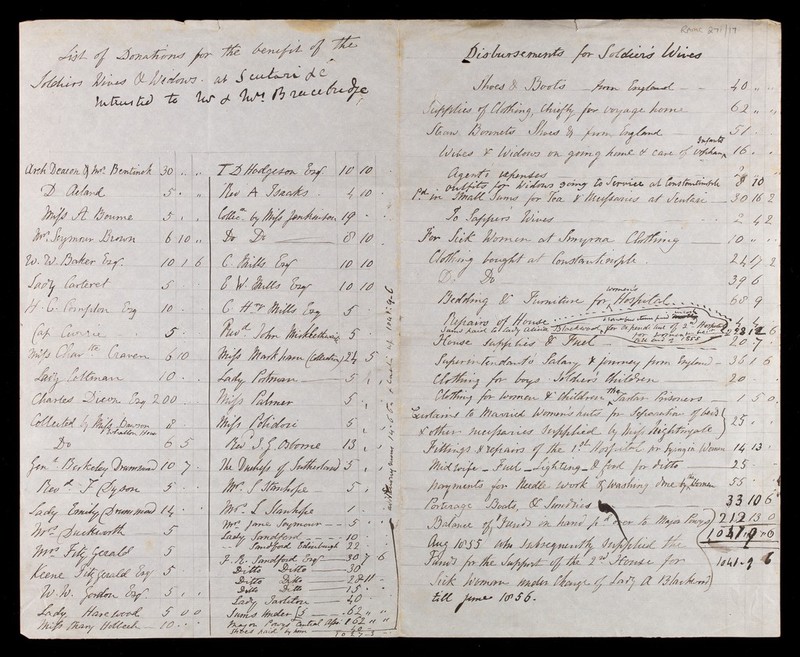 List of Donations for the benefit of the
Soldiers Wives & Widows at Scutari &c
intrusted to Mr & Mrs Bracebridge
Arch Deacon & Mrs. Bentinck 30 " "
D. Acland 5 " "
Miss A. Bourne 5
Mrs. Seymour Brown 6 10 "
W. W. Baker Esqr. 10 1 6
Lady Carteret 5
H. C. Compton Esq 10
Cap Currie 5
Miss Charte Craven 6 10
Lady Cottenham 10
Charles Dixon Esq 200
Collected by Miss Dawson 8
Do 6 5
Genl Berkeley Drummond 10 7
Revd. F Dyson 5
Lady Emily Drummond 14
Mrs. Duckworth 5
Mrs. Fitz Gerald 5
Keene Fitz Gerald Esq 5
W. W. Gordon Esqr 5
Lady Harewood 5 0 0
Miss Mary 10
T. D Hodgeson Esqr 10 10
Rev A Isaacks 4 10
Collecn. by Miss Jenkinson 19
Do Do 8 10
C. Mills Esqr 10 10
E W. Mills Esqr 10 10
C. H. Mills Esq 5
Revd. John 5
Miss Markham (Collection) 24 5
Lady Portman 5
Miss Palmer 5
Miss Polidori 5
Revd S. G. Osborne 13
The Duchess of Sutherland 5
Mr. S Stanhope 5
Mr. L Stanhope 1
Mrs. Jane Seymour 5
Lady Sandford 10
Sandford Edinburgh 22
F. R. Sandford Esqr 30 7 6
Ditto Ditto 30
Ditto Ditto 28 11
Ditto Ditto 15
Lady Tarleton 40
Sums under £5 62 " "
Major Powys Central Assn 162 " "
Shoes paid by home 40
Disbursements for Soldiers Wives
Shoes & Boots from England 40 " "
Supplies of Clothing, Chiefly for voyage home 62 " "
Straw Bonnets Shoes & from England 51
Infants
Wives & Widows on going home & care of orphans 16
Agents expenses
outfits for Widows going to Service at Constantinople 8 10
Pd. in Small Sums for Tea & Necessaries at Scutari 30 16 2
To Sappers Wives 2 4 2
For Sick Women at Smyrna Clothing 10 " "
Clothing bought at Constantinople 24 17 2
Do. Do 39 6
Bedding & Furniture for women's Hospital 68 9
Repairs of House
House Supplies & Fuel 20 7
Superintendant's Salary & Journey from England 35 1 6
Clothing for boys Soldiers Children 20
Clothing for women & Children the Tartar Prisoners 1 5 0
Curtains to Married Women's huts for Separation of beds
& other necessaries supplied by Miss Nightingale 25
Fittings & repairs of the 1st Hospital for Lying in Women 14 13
Midwife Fuel Lighting & food for ditto 25
Payments for Needle work & washing done by the Women 55
Porterage Boats, & Sundries 33 10 6
Balance of Funds on hand pd over to Major Powys 212 13 0
Aug 1855 who subsequently supplied the
Funds for the support of the 2nd House for 1041 9 6
Sick Women under Charge of Lady A Blackwood
till June 1856.